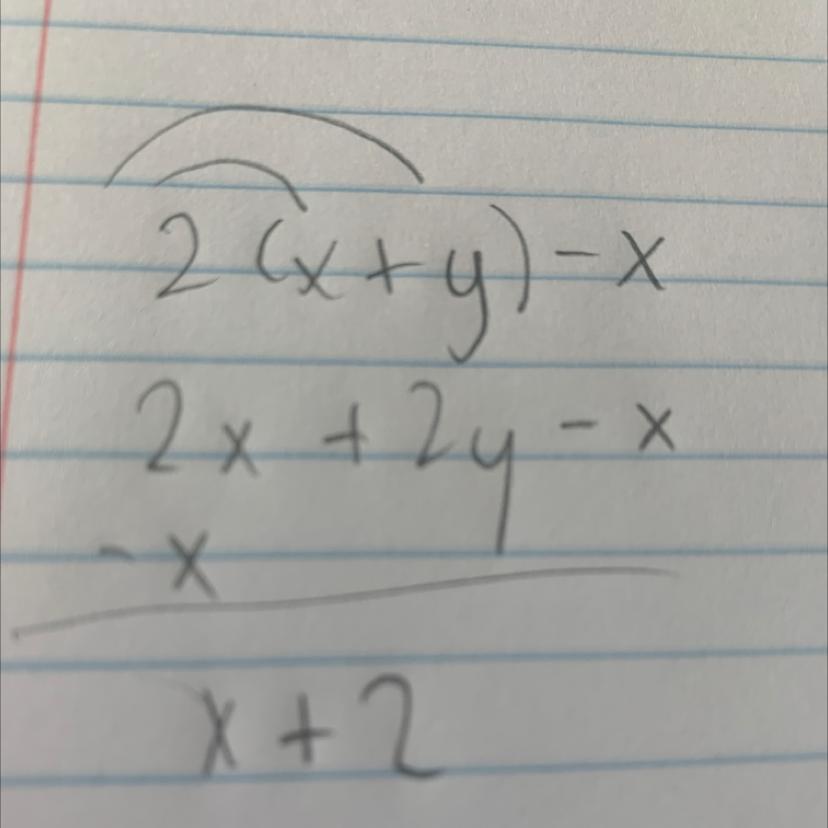 2(x+y)-x
2x + 2y - x
- x
x + 2